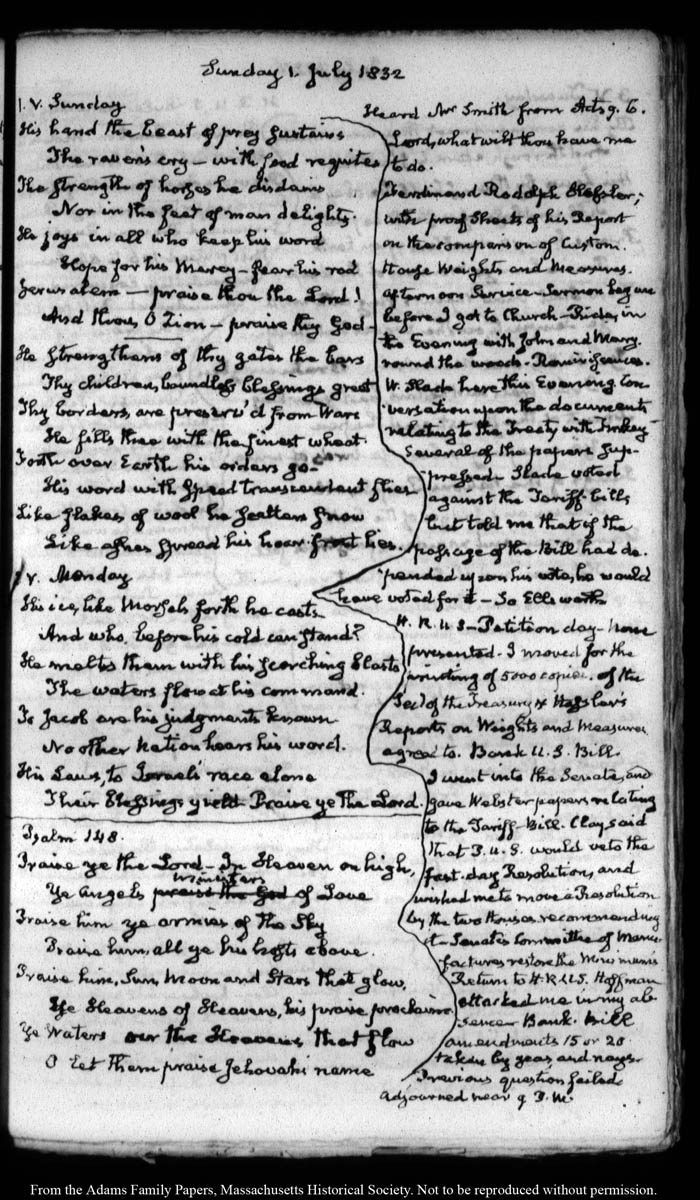 Sunday 1. July 1832
1. V. Sunday
His hand the beast of prey sustains
The raven's cry – with food requites
The strength of horses he disdains
Nor in the feet of man delights.
He joys in all who keep his word
Hope for his Mercy – fear his rod
Jerusalem – praise thou the Lord!
And thou, O Zion – praise thy God –
He strengthens of thy gates the bars
Thy children, boundless blessings greet
Thy borders, are preserv'd from Wars
He fills thee with the finest wheat.
Forth over Earth his orders go –
His word with speed transcendent flies
Like flakes of wool he scatters snow
Like ashes spread his hoar frost lies.
V. Monday
His ice, like Morsels forth he casts
And who, before his cold can stand?
He melts them with his scorching blasts
The waters flow at his command.
To Jacob are his judgments known
No other Nation hears his word.
His Laws, to Israels' race alone
Their blessings yield Praise ye the Lord.
Psalm 148.
Praise ye the Lord – In Heaven on high,
ministers
Ye Angels praise the God of Love
Praise him ye armies of the Sky
Praise him, all ye his hosts above.
Praise him, Sun, Moon and Stars that glow,
Ye Heavens of Heavens, his praise proclaim
Ye Waters our the Heavens that flow
O Let them praise Jehovahs name
Heard Mr Smith from Acts 9. 6.
Lord, what wilt thou have me
to do.
Ferdinand Rodolph Hassler;
with proof Sheets of his Report
on the comparison of Custom.
House Weights and Measures.
afternoon Service – Sermon begun
before I got to Church – Ride, in
the Evening with John and Mary.
round the woods – Reminiscences.
W. Slade here this Evening. Con
versation upon the documents
relating to the Treaty with Turkey
Several of the papers sup-
pressed – Slade voted
against the Tariff bill,
but told me that if the
passage of the Bill had de.
pended upon his vote, he would
have voted for it – So Ellsworth
H. R. U S – Petition day – None
presented – I moved for the
printing of 5000 copies. of the
Secy of the Treasury & Hassler's
Reports on Weights and Measures
agreed to. Bank U. S. Bill.
I went into the Senate, and
gave Webster papers relating
to the Tariff Bill. Clay said
that P. U. S. would veto the
fast-day Resolution, and
wished me to move a Resolution
by the two Houses recommending
it – Senate's Committee of Manu
factures restore the Minimums
Return to H. R. U.S. Hoffman
attacked me in my ab
sence – Bank Bill
amendments 15 or 20
taken by yeas, and nays.
Previous question failed
adjourned near 9 P.M.
From the Adams Family Papers, Massachusetts Historical Society. Not to be reproduced without permission.